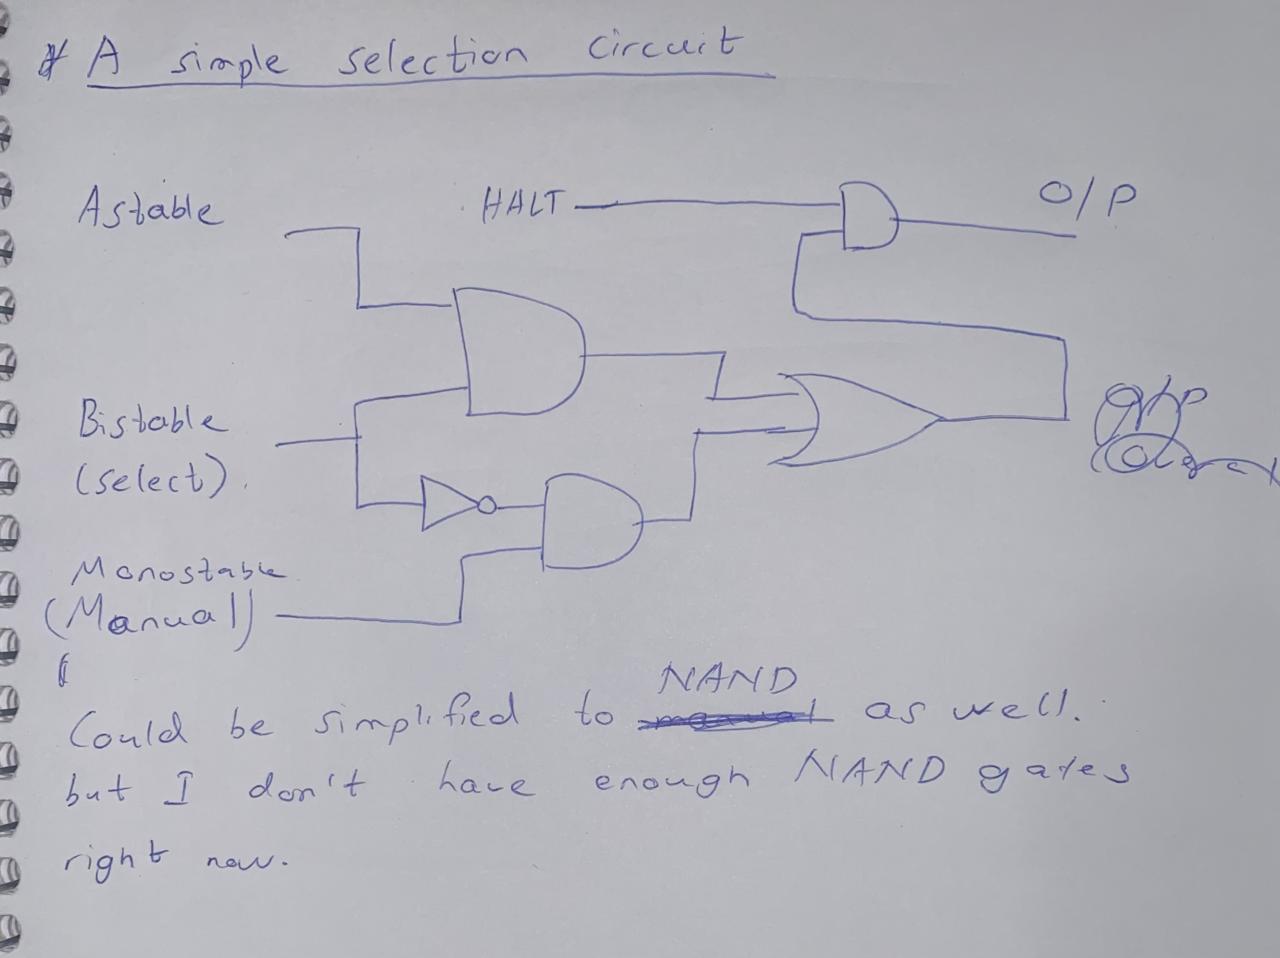 * A simple selection circuit
Astable
HALT
O/P
Bistable
(select).
O/P
Monostable
(Manual)
Could be simplified to NAND as well.
but I don't have enough NAND gates
right now.